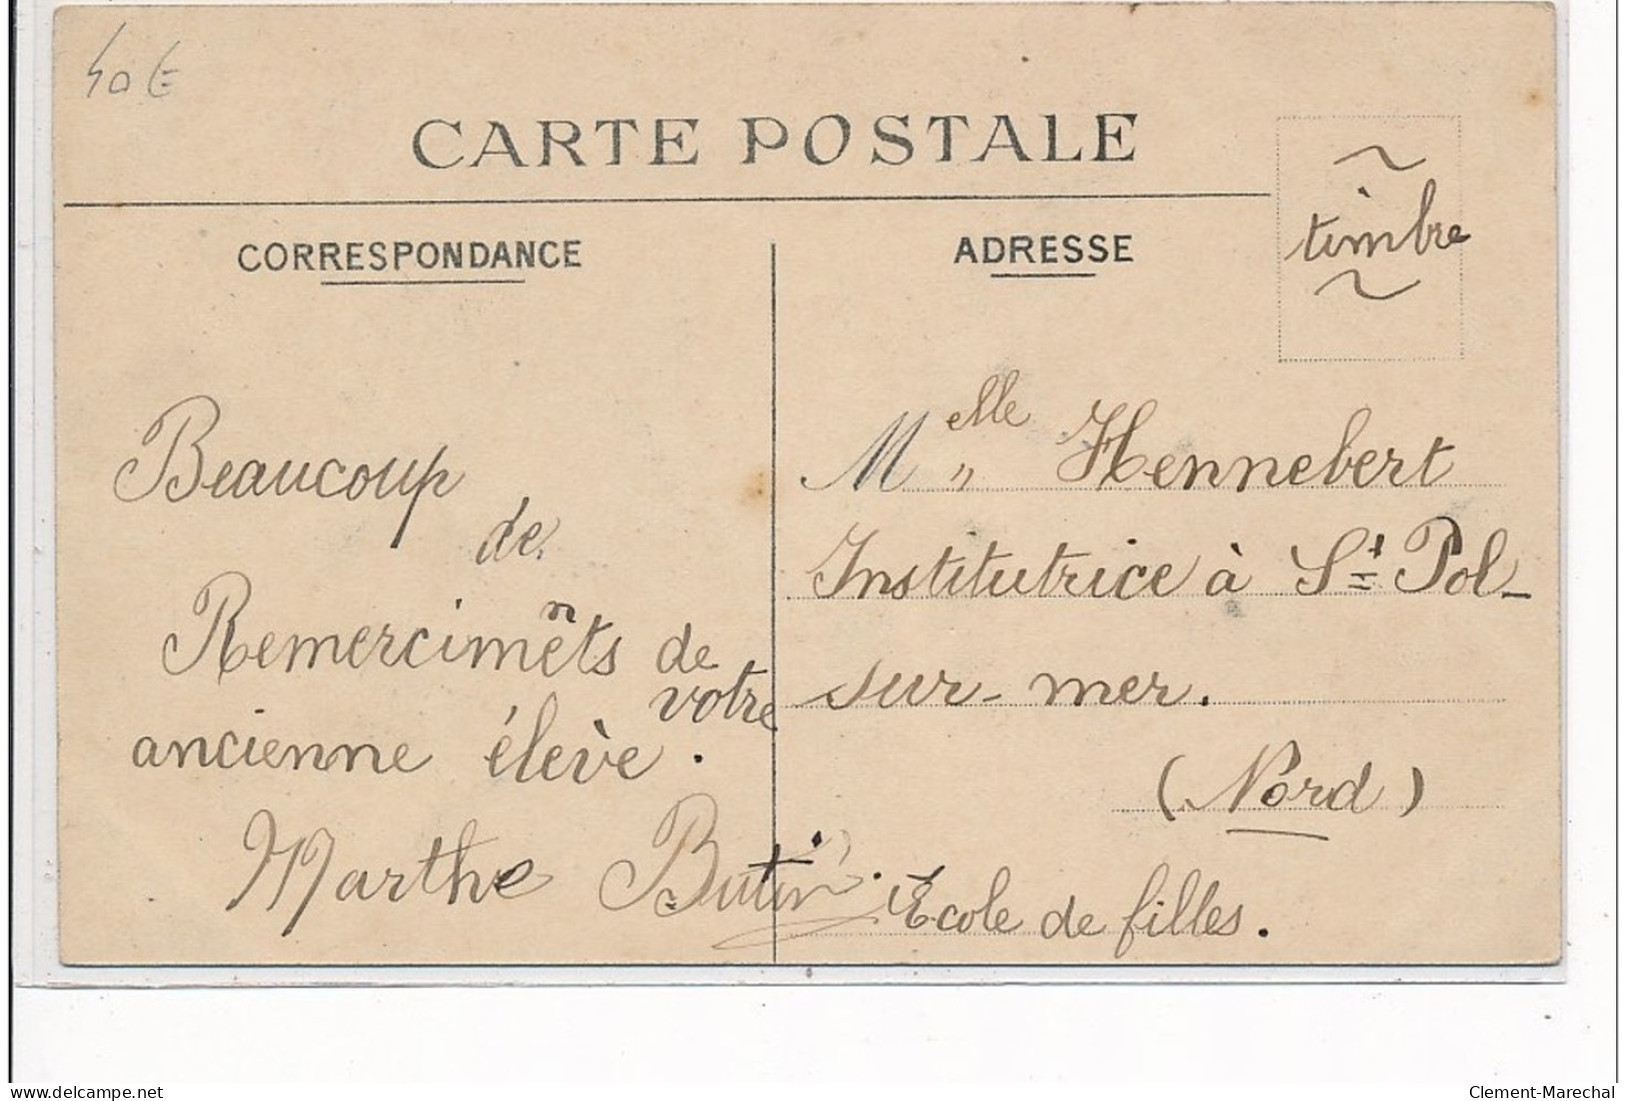 40 €
CARTE POSTALE
timbre
CORRESPONDANCE
Beaucoup
de
Remercimêts de
n
votre
ancienne élève.
Marthe Butin.
ADRESSE
Melle Hennebert
Institutrice à St Pol-
sur-mer.
(Nord)
Ecole de filles.
www.delcampe.net
Clement-Marechal